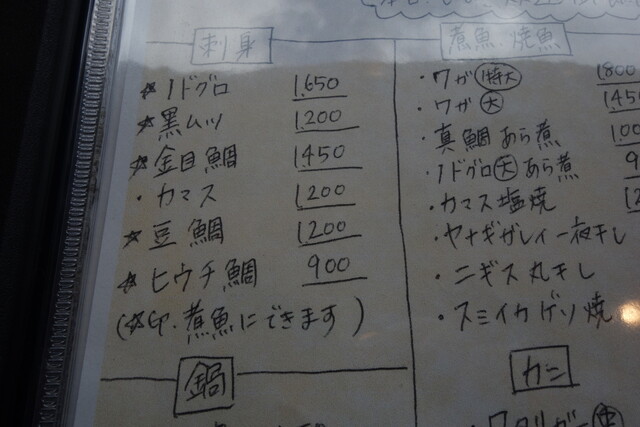 刺身
☆ノドグロ 1.650
☆黒ムツ 1.200
☆金目鯛 1.450
・カマス 1200
☆豆鯛 1200
☆ヒウチ鯛 900
(☆印.煮魚にできます)
鍋
煮魚.焼魚
・ワガ(特大) 1.800
・ワガ(大) 1.45
・真鯛あら煮 1.00
・ノドグロ(大)あら煮 9
・カマス塩焼 12
・ヤナギガレイ一夜干し
・ニギス丸干し
・スミイカゲソ焼
カニ